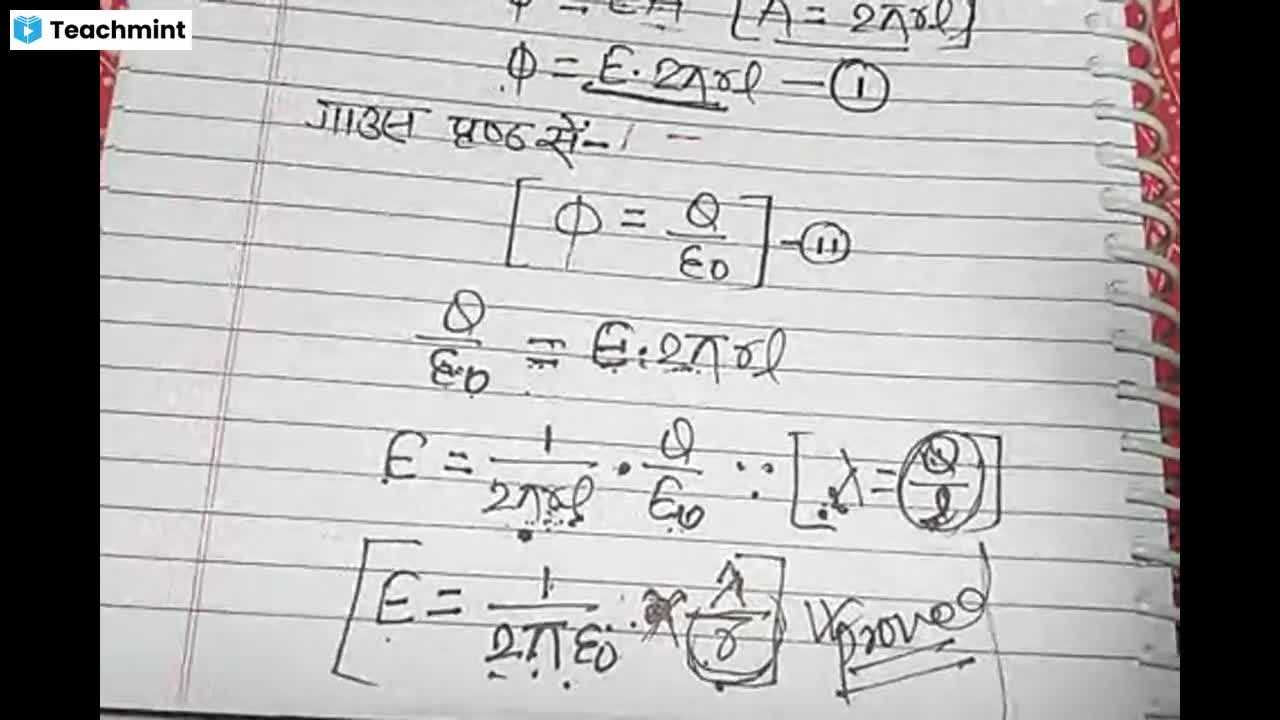 Teachmint
φ = EA [A = 2πrl]
φ = E·2πrl — (1)
गाउस प्रष्ठ से-
[φ = Q/ε0] - (11)
Q/ε0 = E·2πrl
E = 1/2πrl · Q/ε0 ∵ [λ = Q/l]
[E = 1/2πε0 · λ/r] proved